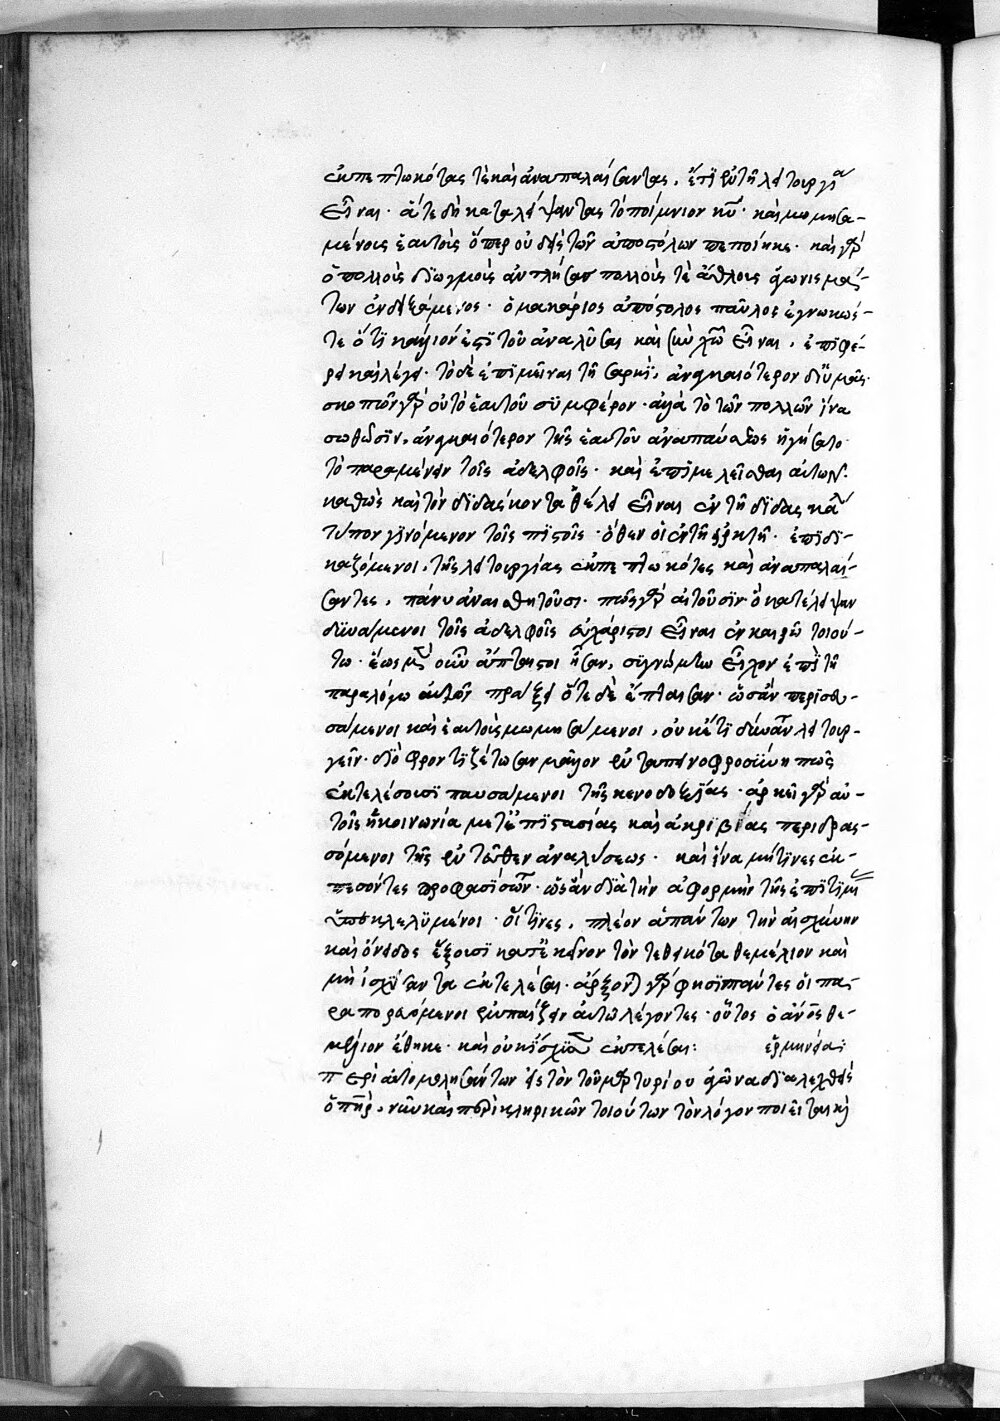 ἐκπεπτωκότας τὲ καὶ ἀναπαλαίσαντας, ἔτι ἐν τῆ λειτουργία
εἶναι· ἅτε δὴ καταλείψαντας τὸ ποίμνιον κυ· καὶ μωμησα-
μένοις ἑαυτοὺς ὅπερ οὐδεὶς τῶν ἀποστόλων πεποίηκε· καὶ γὰρ
ὁ πολλοὺς διωγμοὺς ἀντλήσας πολλοὺς τὲ ἄθλους ἀγωνισμά-
των ἐνδειξάμενος· ὁ μακάριος ἀπόστολος παῦλος ἐγνωκώς-
τε ὅτι κάλλιόν ἐστι τοῦ ἀναλῦσαι καὶ σὺν χω εἶναι, ἐπιφέ-
ρει καὶ λέγει· τὸ δὲ ἐπιμεῖναι τῆ σαρκὶ, ἀναγκαιότερον δι' ὑμᾶς·
σκοπιῶν γὰρ οὐ τὸ ἑαυτοῦ συμφέρον· ἀλλὰ τὸ τῶν πολλῶν ἵνα
σωθῶσιν, ἀναγκαιότερον τῆς ἑαυτοῦ ἀναπαύσεως ἡγήσατο
τὸ παραμένειν τοῖς ἀδελφοῖς· καὶ ἐπιμελεῖσθαι αὐτῶν·
καθὼς καὶ τὸν διδάσκοντα θέλει εἶναι ἐν τῆ διδασκαλία
τύπον γινόμενον τοῖς πιστοῖς· ὅθεν οἱ ἐν τῆ εἱρκτῆ· ἐπιδι-
καζόμενοι, τῆς λειτουργίας ἐκπεπτωκότες καὶ ἀναπαλαί-
σαντες, πάνυ ἀναισθητοῦσι· πῶς γὰρ αἰτοῦσιν ὃ κατέλειψαν
δυνάμενοι τοῖς ἀδελφοῖς εὐχάριστοι εἶναι ἐν καιρῶ τοιού-
τω· ἕως μὲν οὖν ἄπταιστοι ἦσαν, συγνώμην εἶχον ἐπὶ τῆ
παραλόγω αὐτῶν πράξει ὅτε δὲ ἔπταισαν· ὡσὰν περισσευ-
σάμενοι καὶ ἑαυτοὺς μωμησάμενοι, οὐκέτι δύνανται λειτουρ-
γεῖν· διὸ φροντιζέτωσαν μᾶλλον ἐν ταπεινοφροσύνη πῶς
ἐκτελέσουσι παυσάμενοι τῆς κενοδοξίας· ἀρκεῖ γὰρ αὐ-
τοῖς ἡ κοινωνία μετ' ἐπιστασίας καὶ ἀκριβίας περιδρασ-
σόμενοι τῆς ἐντεῦθεν ἀναλύσεως· καὶ ἵνα μή τινες ἐκ-
πεσόντες προφασίσωνται· ὡσὰν διὰ τὴν ἀφορμὴν τῆς ἐπιτιμίας
ὑπεκλελυμένοι· οἵτινες, πλέον ἁπάντων τὴν αἰσχύνην
καὶ ὄνειδος ἕξουσι κατ' ἐκεῖνον τὸν τεθεικότα θεμέλιον καὶ
μὴ ἰσχύσαντα ἐκτελέσαι· ἄρξονται γὰρ φησὶ πάντες οἱ πα-
ραπορευόμενοι ἐμπαίζειν αὐτῶ λέγοντες· οὗτος ὁ ἄνος θε-
μέλιον ἔθηκε· καὶ οὐκ ἴσχυσεν ἐκτελέσαι: ἑρμηνεία:
περὶ αὐτομολησάντων εἰς τὸν τοῦ μαρτυρίου ἀγῶνα διαλεχθεὶς
ὁ πὴρ, νῦν καὶ περὶ κληρικῶν τοιούτων τὸν λόγον ποιεῖται καὶ